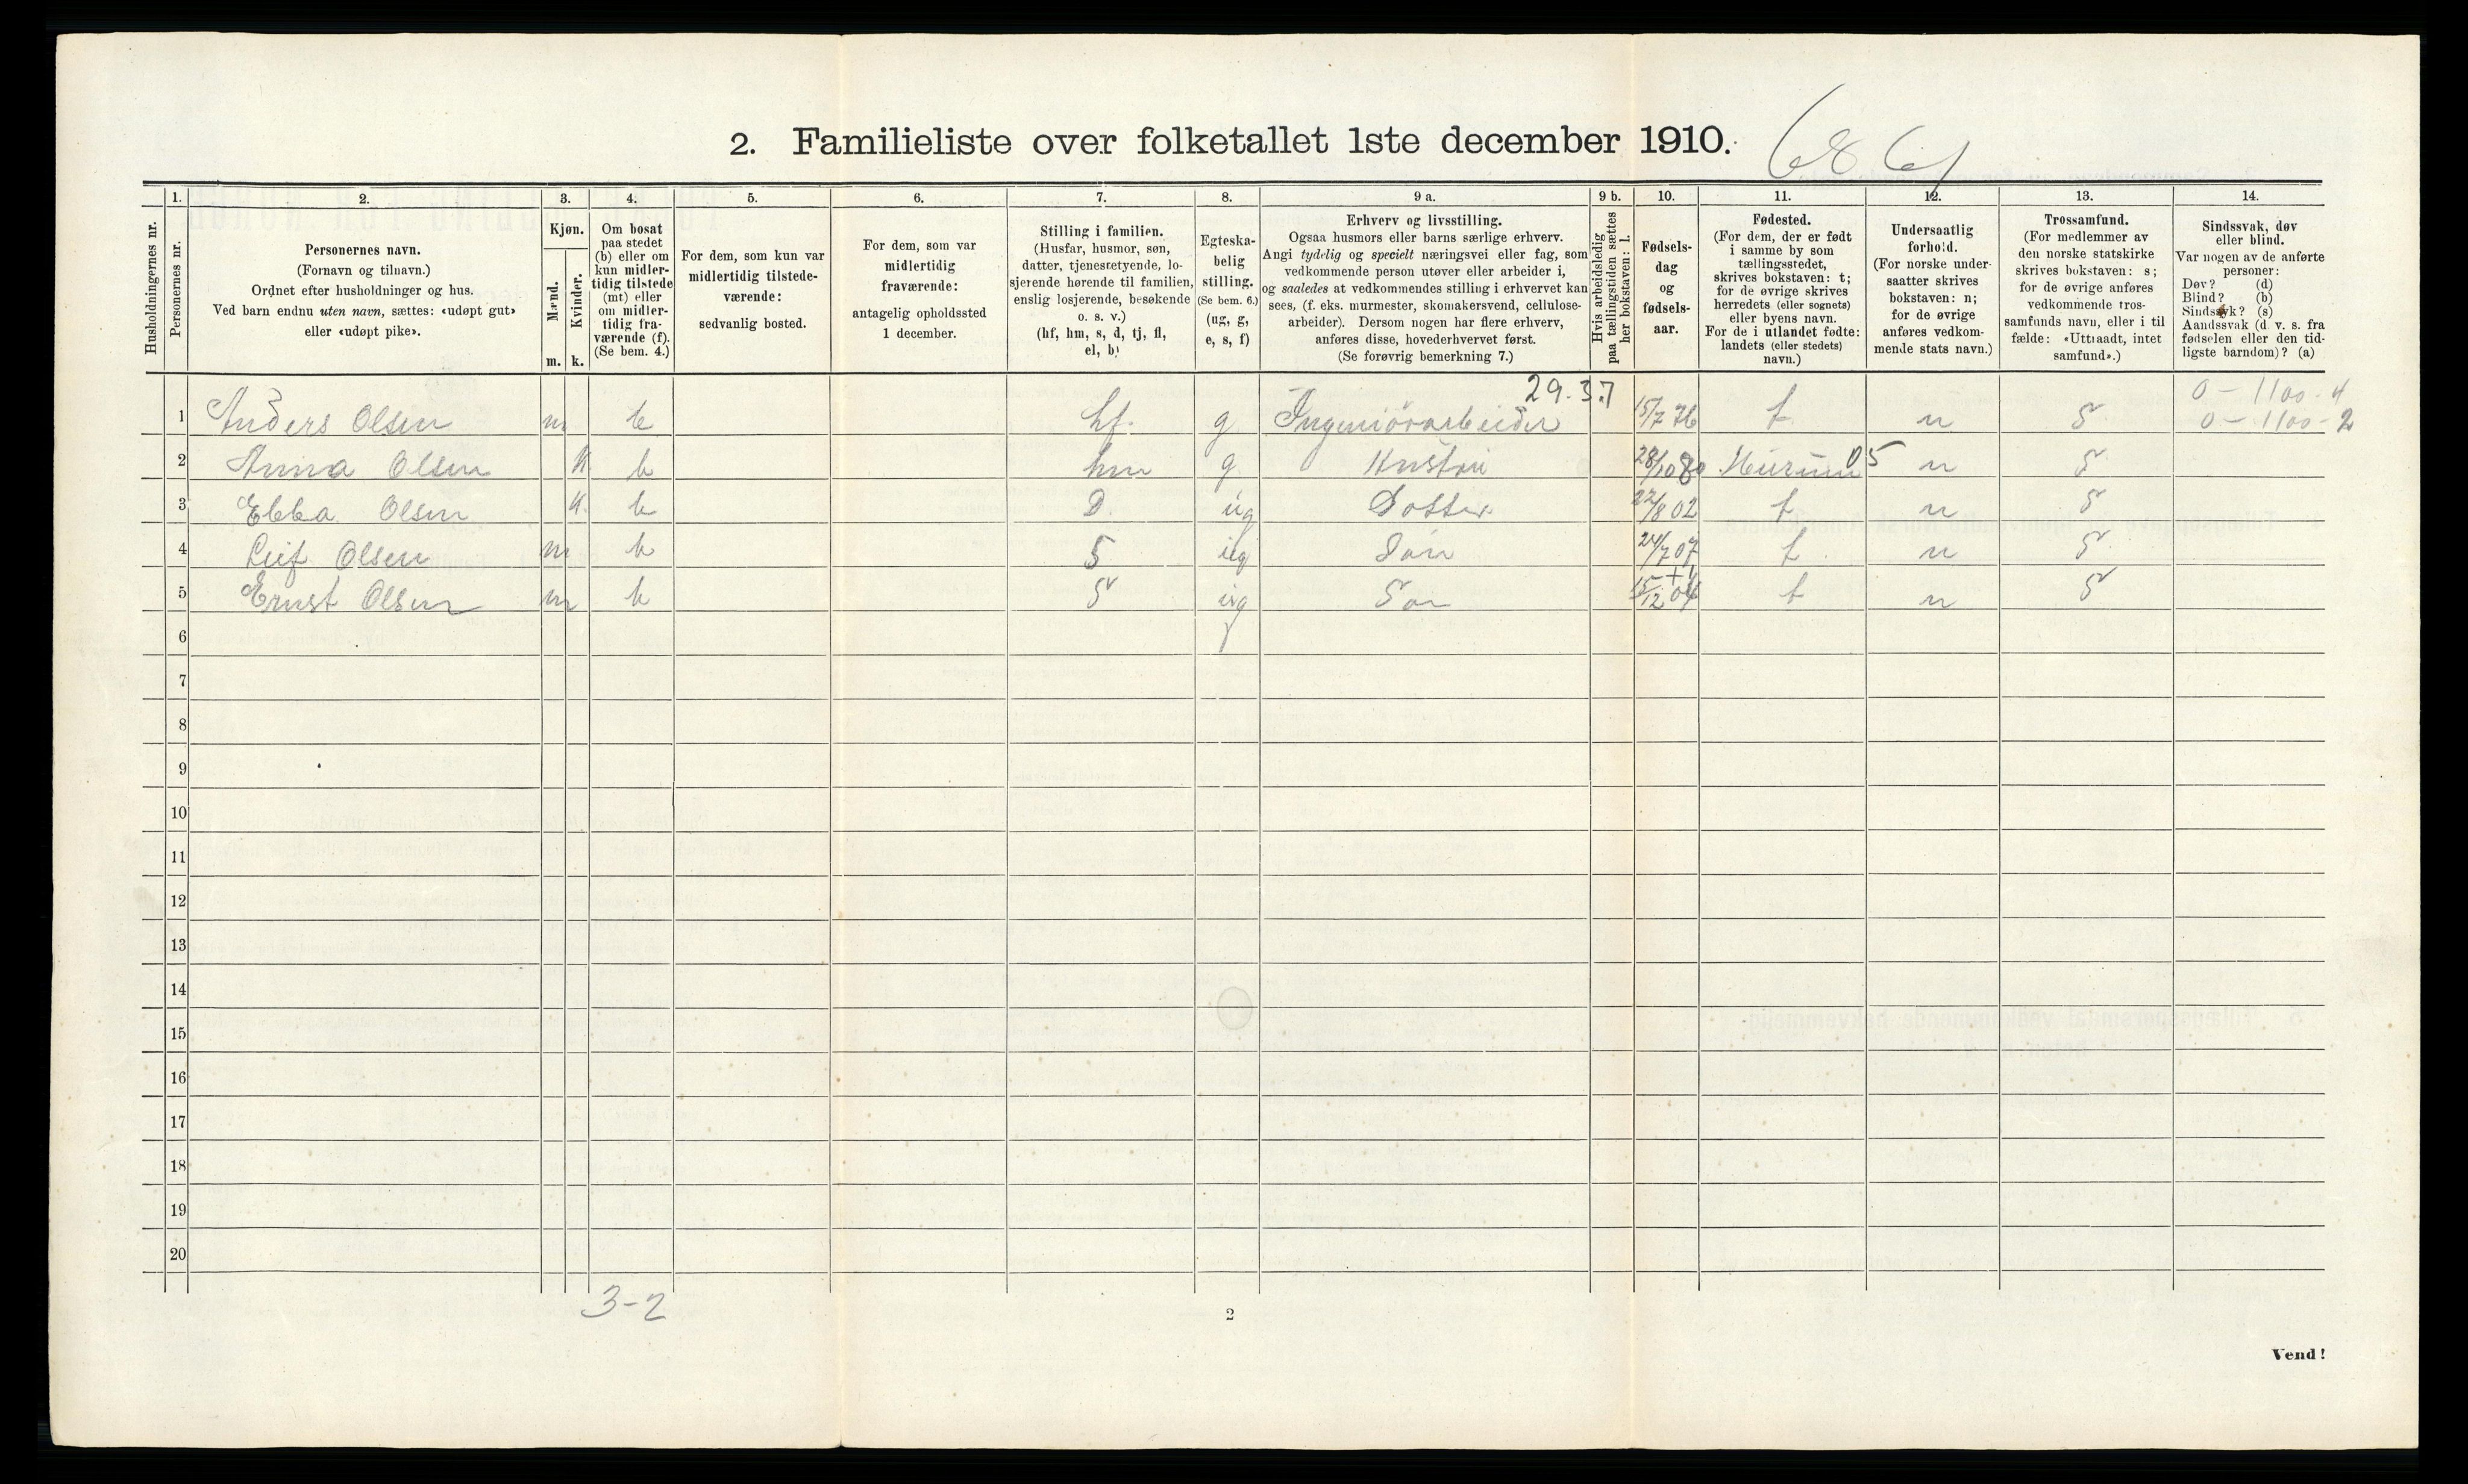 2. Familieliste over folketallet 1ste december 1910.
Husholdningernes nr.
1.
Personernes nr.
2.
Personernes navn.
(Fornavn og tilnavn.)
Ordnet efter husholdninger og hus.
Ved barn endnu uten navn, sættes: «udøpt gut»
eller «udøpt pike».
3.
Kjøn.
Mænd.
m.
Kvinder.
k.
4.
Om bosat
paa stedet
(b) eller om
kun midler-
tidig tilstede
(mt) eller
om midler-
tidig fra-
værende (f).
(Se bem. 4.)
5.
For dem, som kun var
midlertidig tilstede-
værende:
sedvanlig bosted.
6.
For dem, som var
midlertidig
fraværende:
antagelig opholdssted
1 december.
7.
Stilling i familien.
(Husfar, husmor, søn,
datter, tjenestetyende, lo-
sjerende hørende til familien,
enslig losjerende, besøkende
o. s. v.)
(hf, hm, s, d, tj, fl,
el, b)
8.
Egteska-
belig
stilling.
(Se bem. 6.)
(ug, g,
e, s, f)
9 a.
Erhverv og livsstilling.
Ogsaa husmors eller barns særlige erhverv.
Angi tydelig og specielt næringsvei eller fag, som
vedkommende person utøver eller arbeider i,
og saaledes at vedkommendes stilling i erhvervet kan
sees, (f. eks. murmester, skomakersvend, cellulose-
arbeider). Dersom nogen har flere erhverv,
anføres disse, hovederhvervet først.
(Se forøvrig bemerkning 7.)
9 b.
Hvis arbeidsledig
paa tællingstiden sættes
her bokstaven: l.
10.
Fødsels-
dag
og
fødsels-
aar.
11.
Fødested.
(For dem, der er født
i samme by som
tællingsstedet,
skrives bokstaven: t;
for de øvrige skrives
herredets (eller sognets)
eller byens navn.
For de i utlandet fødte:
landets (eller stedets)
navn.)
12.
Undersaatlig
forhold.
(For norske under-
saatter skrives
bokstaven: n;
for de øvrige
anføres vedkom-
mende stats navn.)
13.
Trossamfund.
(For medlemmer av
den norske statskirke
skrives bokstaven: s;
for de øvrige anføres
vedkommende tros-
samfunds navn, eller i til
fælde: «Uttraadt, intet
samfund».)
14.
Sindssvak, døv
eller blind.
Var nogen av de anførte
personer:
Døv? (d)
Blind? (b)
Sindssvk? (s)
Aandssvak (d. v. s. fra
fødselen eller den tid-
ligste barndom)? (a)
29.37 0-1100-4
1 Anders Olsen m b hf. g Ingeniörarbeider 15/7 76 t n S 0-1100-2
2 Anna Olsen K b hm g Hustru 28/10 80 Hurum 05 n S
3 Ebba Olsen K. b D. ug Datter 22/8 02 t n S
4 Leif Olsen m b S ug Sön 24/7 07 t. n S
5 Ernst Olsen m b S ug Son 15/12 04 t n S
6
7
8
9
10
11
12
13
14
15
16
17
18
19
20
3-2
2
Vend!